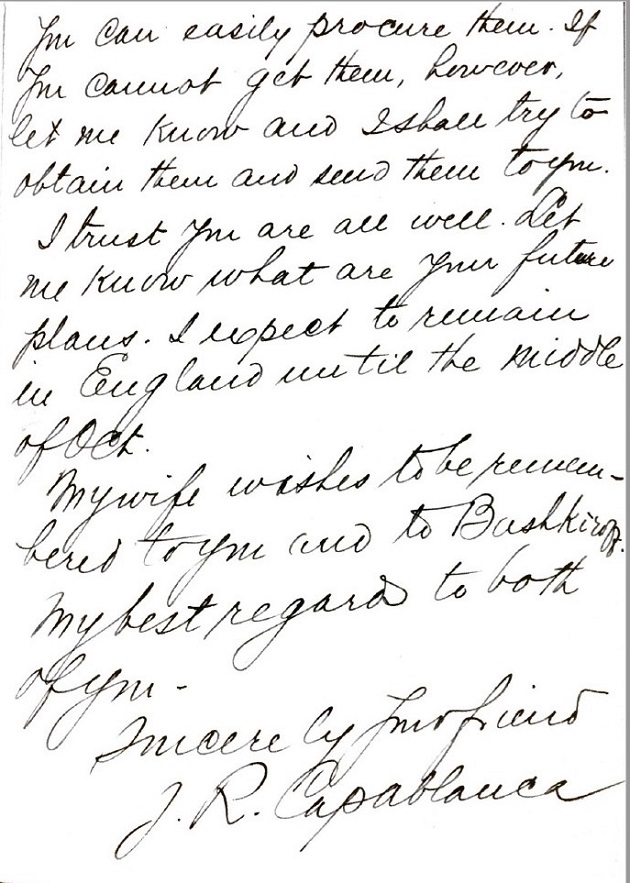 You can easily procure them. If
you cannot get them, however,
let me know and I shall try to
obtain them and send them to you.
I trust you are all well. Let
me know what are your future
plans. I expect to remain
in England until the middle
of Oct.
My wife wishes to be remem-
bered to you and to Bashkiroff.
My best regards to both
of you -
Sincerely your friend
J. R. Capablanca